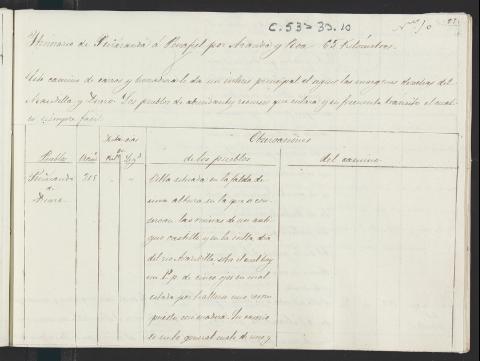 C.53=33.10
Nº 10
Itinerario de Peñaranda á Peñafiel por Aranda y Roa 63 Kilómetros.
Este camino de carros y herradura le da un interes principal el seguir las margenes derechas del
Arandilla y Duero. Los pueblos de abundantes recursos que enlaza y su frecuente transito el cual
es siempre facil
Distancias
Observaciones
en
Pueblos
de los pueblos
del camino
Peñaranda
de
Duero
255
Villa situada en la falda de
una altura en la que se con-
servan las ruinas de un anti-
guo castillo y en la orilla dra
del rio Arandilla, sobre el cual hay
un P. p. de cinco ojos en mal
estado por hallarse uno recom-
puesto con madera. Su caserio
es en lo general malo de uno y